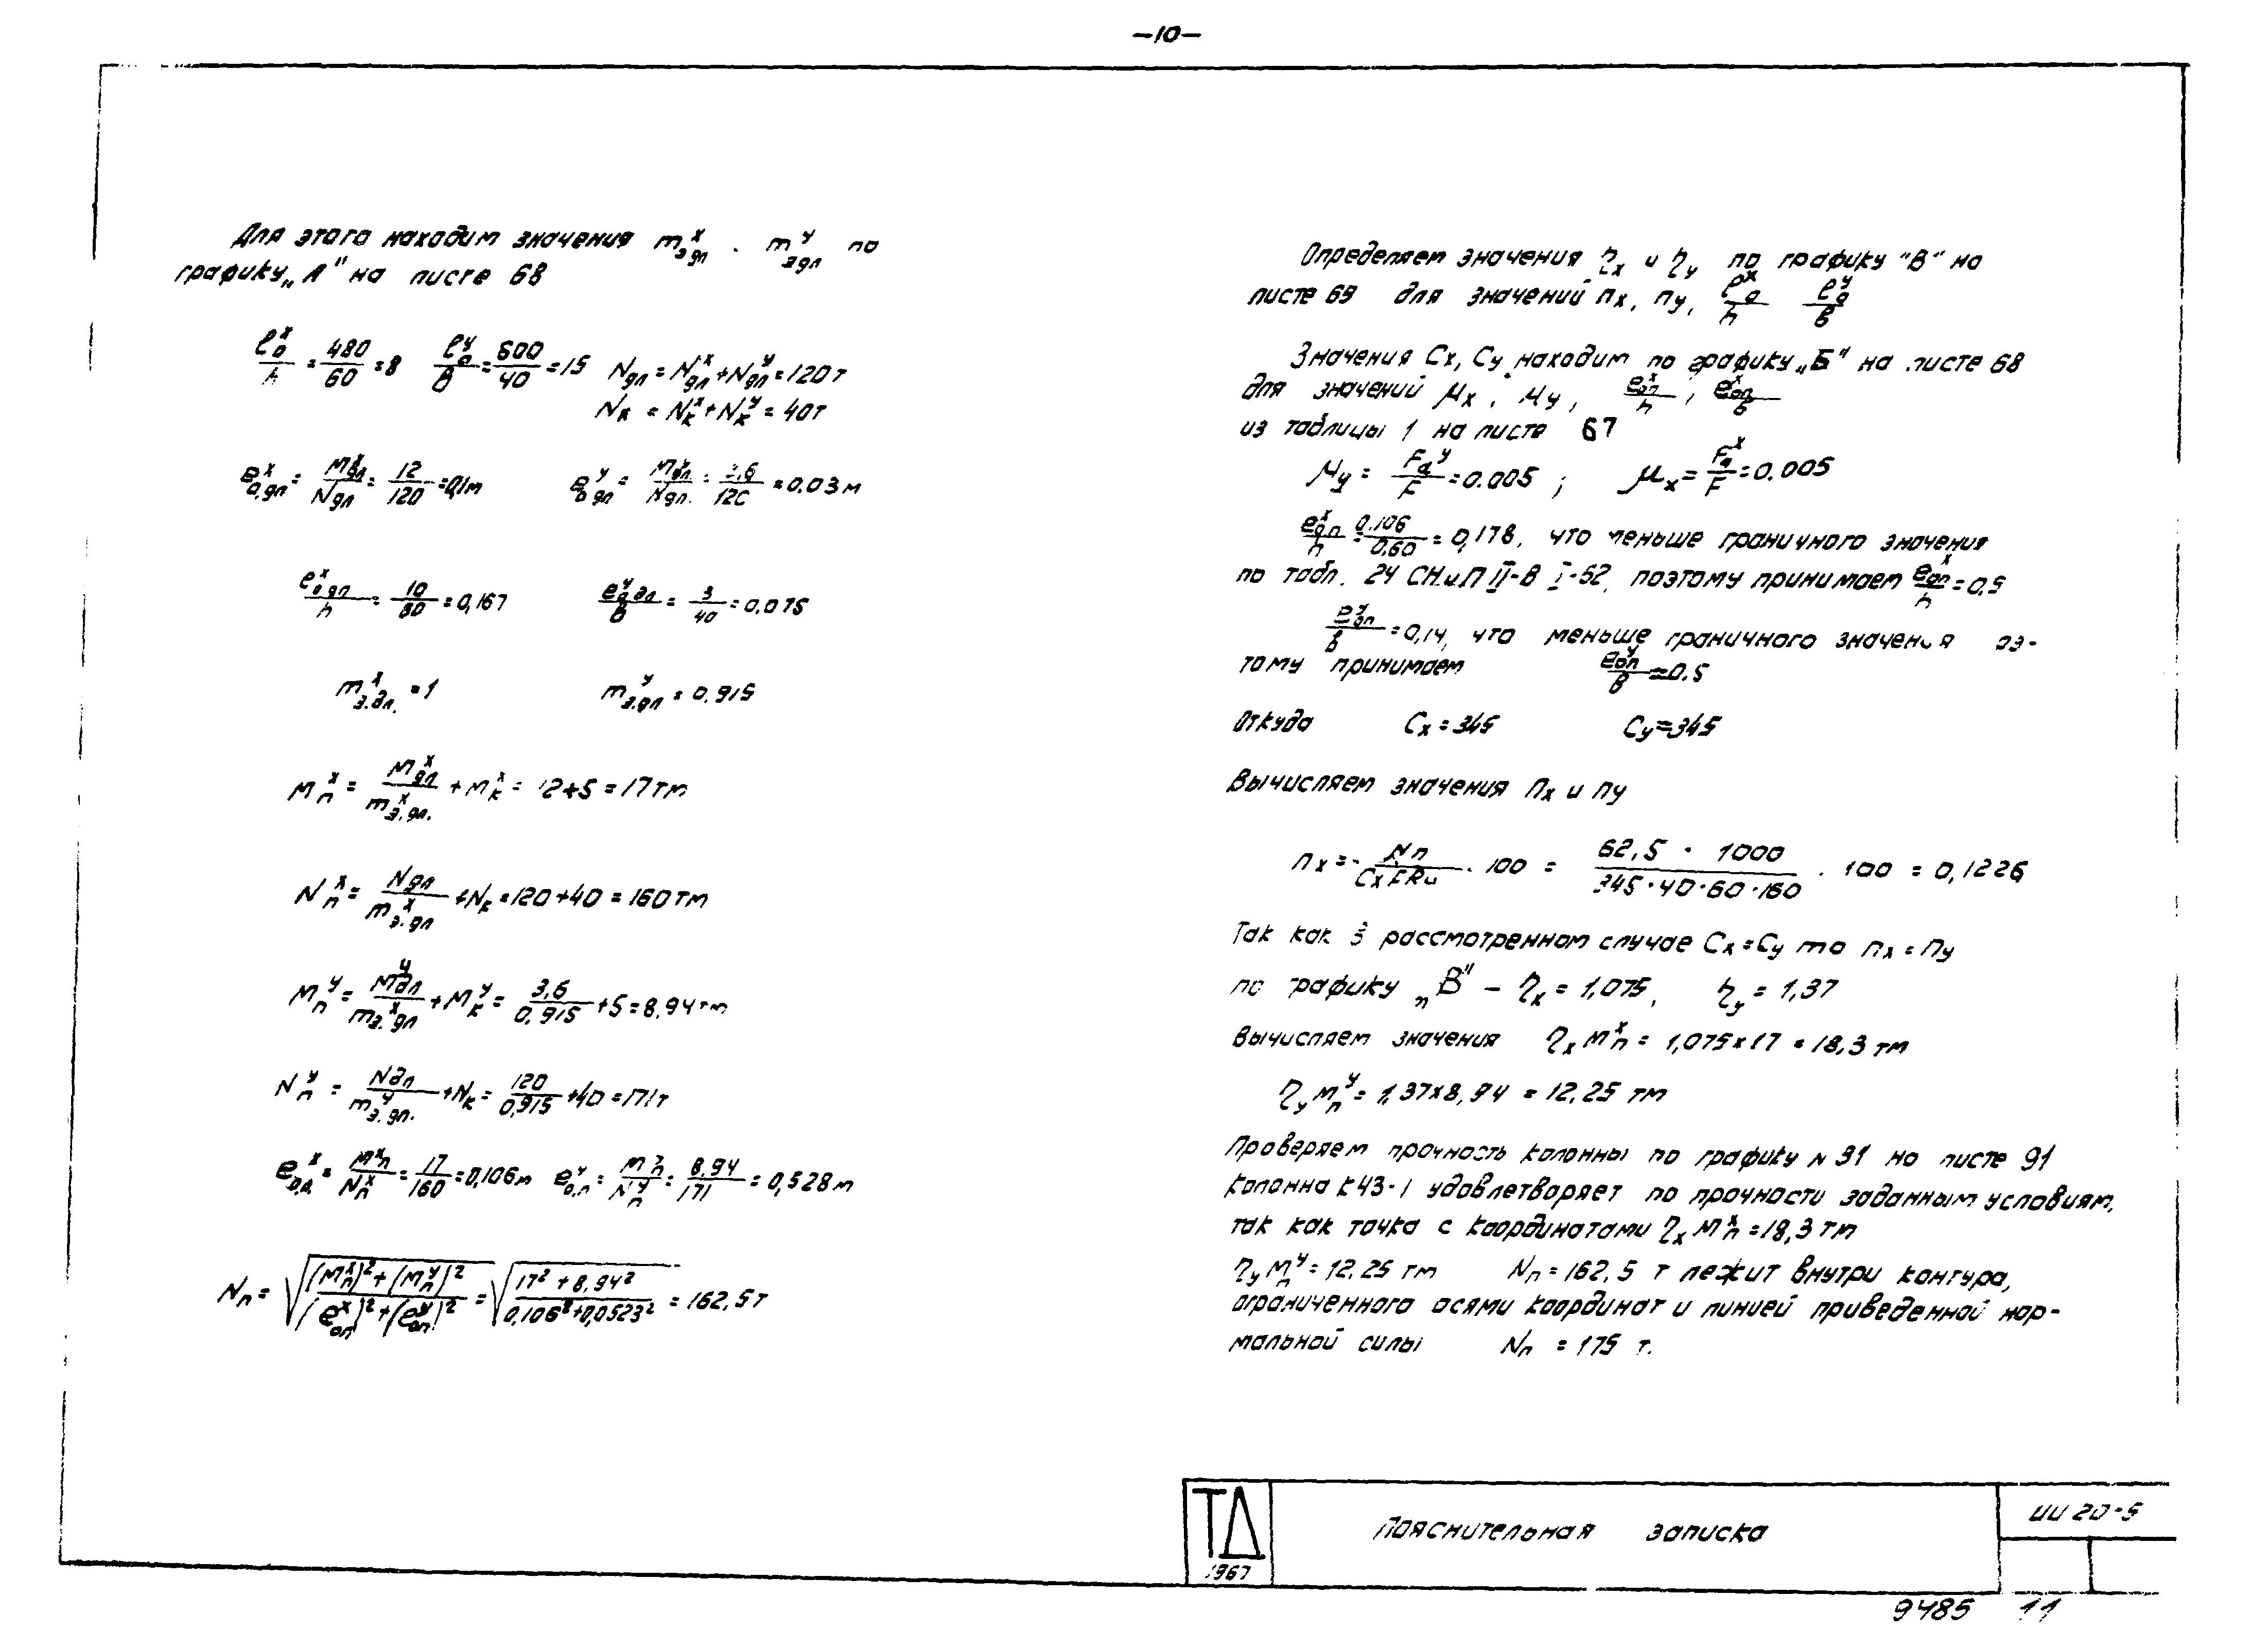 —10—
Для этого находим значения m э.дл^x . m э.дл^y по
графику „А" на листе 68
ℓ₀^x/h = 480/60 = 8   ℓ₀^y/в = 600/40 = 15   Nдл = Nдл^x + Nдл^y = 120 т
Nк = Nк^x + Nк^y = 40т
e₀,дл^x = Mдл^x/Nдл = 12/120 = 0,1м   e₀дл^y = Mдл^y/Nдл. = 3,6/120 = 0.03 м
e₀дл^x/h = 10/60 = 0,167   e₀дл^y/в = 3/40 = 0.075
m э.дл.^x = 1   m э.дл^y = 0.915
Mп^x = Mдл^x/m э.дл.^x + Mк^x = 12+5 = 17 тм
Nп^x = Nдл/m э.дл^x + Nк = 120+40 = 160 тм
Mп^y = Mдл^y/m э.дл^x + Mк^y = 3,6/0,915 + 5 = 8,94 тм
Nп^y = Nдл/m э.дл.^y + Nк = 120/0,915 + 40 = 171т
e₀.п^x = Mп^x/Nп^x = 17/160 = 0,106м   e₀.п^y = Mп^y/Nп^y = 8.94/171 = 0,528 м
Nп = √((Mп^x)²+(Mп^y)²/(e₀п^x)²+(e₀п^y)²) = √(17²+8,94²/0,106²+0,0523²) = 162,5т
Определяем значения ηx и ηy по графику "В" на
листе 69 для значений пx, пy, ℓ₀^x/h ℓ₀^y/в
Значения Cx, Cy находим по графику „Б" на листе 68
для значений μx, μy, e₀п^x/h ; e₀п^x/в
из таблицы 1 на листе 67
μy = Fa^y/F = 0.005 ; μx = Fa^x/F = 0.005
e₀п^x/h = 0.106/0.60 = 0,178, что меньше граничного значения
по табл. 24 СНиП II-В I-62, поэтому принимаем e₀п^x/h = 0,5
e₀п^y/в = 0,14, что меньше граничного значения оэ-
тому принимаем e₀п^y/в = 0.5
Откуда Cx = 345 Cy = 345
Вычисляем значения пx и пy
пx = Nп/Cx F Rи · 100 = 62,5 · 1000/345·40·60·160 · 100 = 0,1226
Так как в рассмотренном случае Cx = Cy то пx = пy
по графику „В" – ηк = 1,075, ηy = 1,37
Вычисляем значения ηx Mп^x = 1,075×17 = 18,3 тм
ηy Mп^y = 1,37×8,94 = 12.25 тм
Проверяем прочность колонны по графику N 31 на листе 91
колонна К43-1 удовлетворяет по прочности заданным условиям,
так как точка с координатами ηx Mп^x = 18,3 тм
ηy Mп^y = 12,25 тм Nп = 162,5 т лежит внутри контура,
ограниченного осями координат и линией приведенной нор-
мальной силы Nп = 175 т.
ТД
1967
Пояснительная записка
ИИ 20-5
9485 11